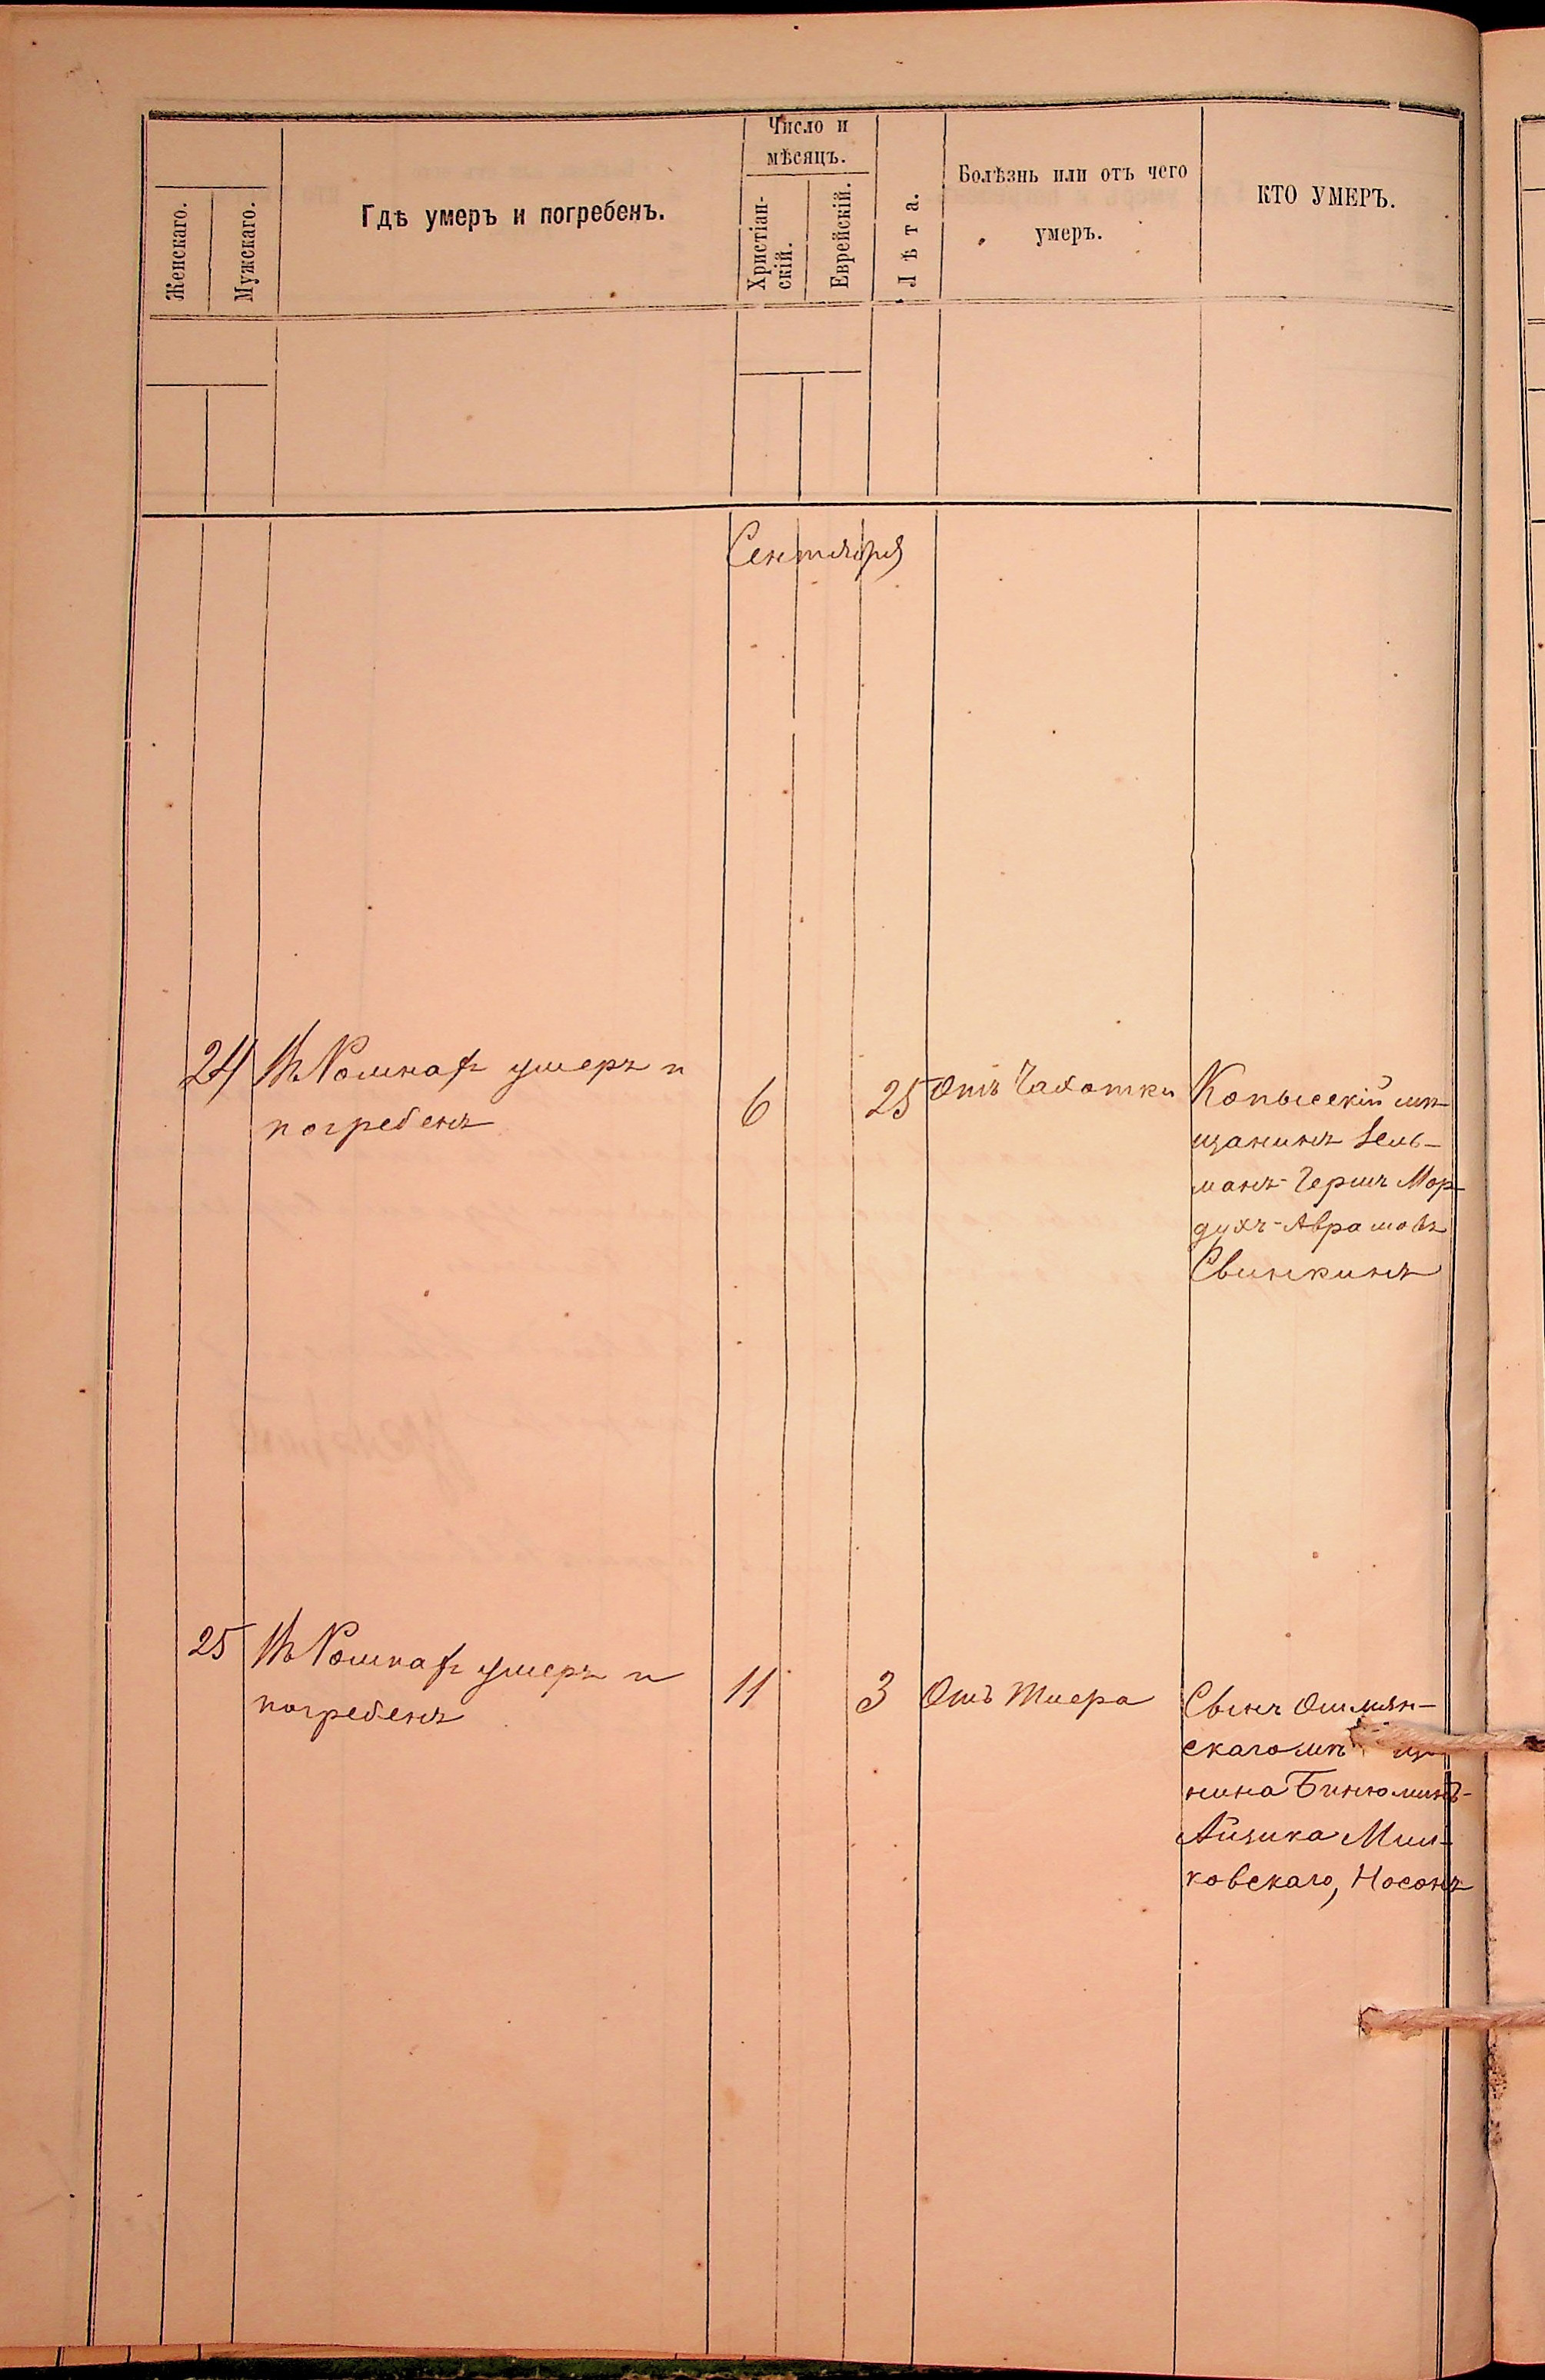 Женскаго.
Мужскаго.
Гдѣ умеръ и погребенъ.
Число и
мѣсяцъ.
Христіан-
скій.
Еврейскій.
Лѣта.
Болѣзнь или отъ чего
умеръ.
КТО УМЕРЪ.
Сентября
24
умеръ и
погребенъ
6
25
Отъ Чахотки
Копысскій мѣ-
щанинъ Зель-
манъ-Гершъ Мор-
духъ-Аврамовъ
Свинкинъ
25
умеръ и
погребенъ
11
3
Отъ Тиера
Сынъ Ошмян-
скаго мѣ
нина Бинюминъ-
Айзика Миш-
ковскаго, Носонъ